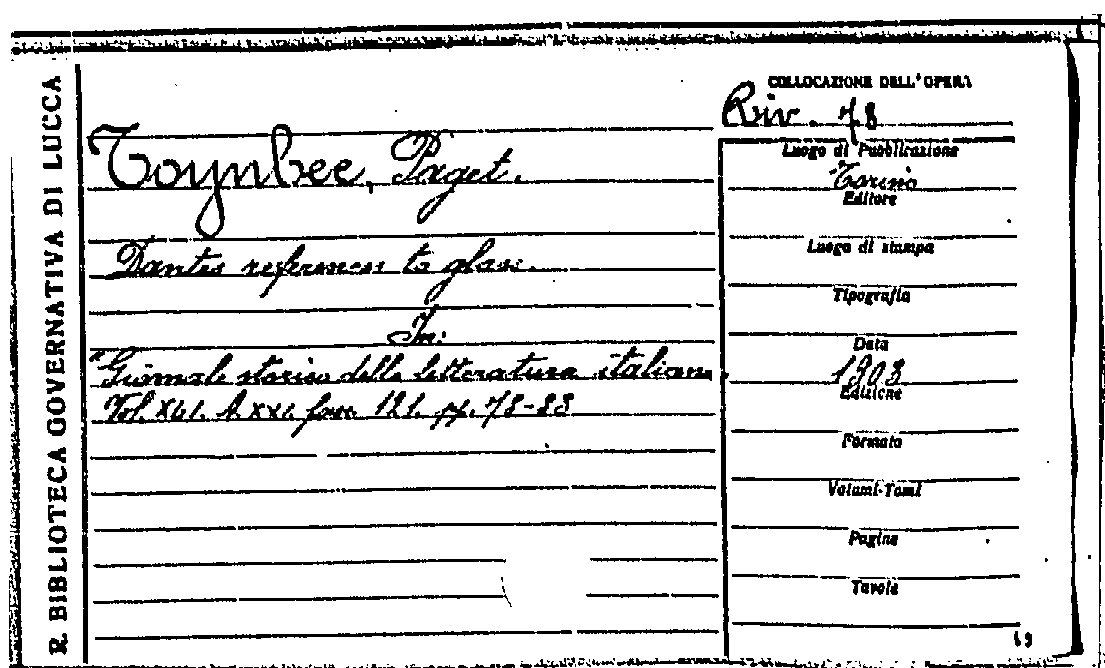 R. BIBLIOTECA GOVERNATIVA DI LUCCA
COLLOCAZIONE DELL'OPERA
Riv. 78
Toynbee, Paget.
Dantes references to glass.
In:
"Giornale storico della letteratura italiana.
Vol. XLI. A. XXI. fasc. 121. pp. 78-83
Luogo di Pubblicazione
Torino
Editore
Luogo di stampa
Tipografia
Data
1903
Edizione
Formato
Volumi-Tomi
Pagine
Tavole